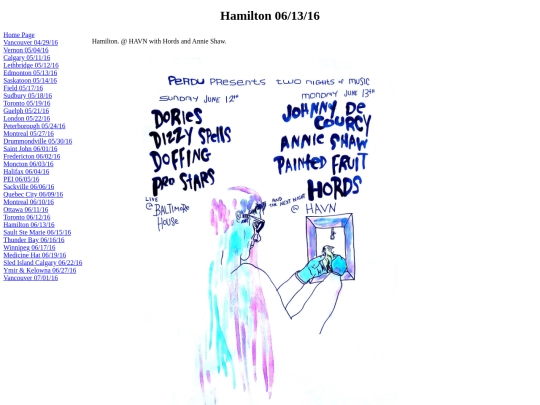 Hamilton 06/13/16
Home Page
Vancouver 04/29/16
Vernon 05/04/16
Calgary 05/11/16
Lethbridge 05/12/16
Edmonton 05/13/16
Saskatoon 05/14/16
Field 05/17/16
Sudbury 05/18/16
Toronto 05/19/16
Guelph 05/21/16
London 05/22/16
Peterborough 05/24/16
Montreal 05/27/16
Drummondville 05/30/16
Saint John 06/01/16
Fredericton 06/02/16
Moncton 06/03/16
Halifax 06/04/16
PEI 06/05/16
Sackville 06/06/16
Quebec City 06/09/16
Montreal 06/10/16
Ottawa 06/11/16
Toronto 06/12/16
Hamilton 06/13/16
Sault Ste Marie 06/15/16
Thunder Bay 06/16/16
Winnipeg 06/17/16
Medicine Hat 06/19/16
Sled Island Calgary 06/22/16
Ymir & Kelowna 06/27/16
Vancouver 07/01/16
Hamilton. @ HAVN with Hords and Annie Shaw.
PERDU PRESENTS TWO NIGHTS of MUSIC
SUNDAY JUNE 12TH
DORIES
DIZZY SPELLS
DOFFING
PRO STARS
LIVE
@ BALTIMORE
HOUSE
MONDAY JUNE 13TH
JOHNNY DE
COURCY
ANNIE SHAW
PAINTED FRUIT
HORDS
AND THE NEXT NIGHT
@ HAVN